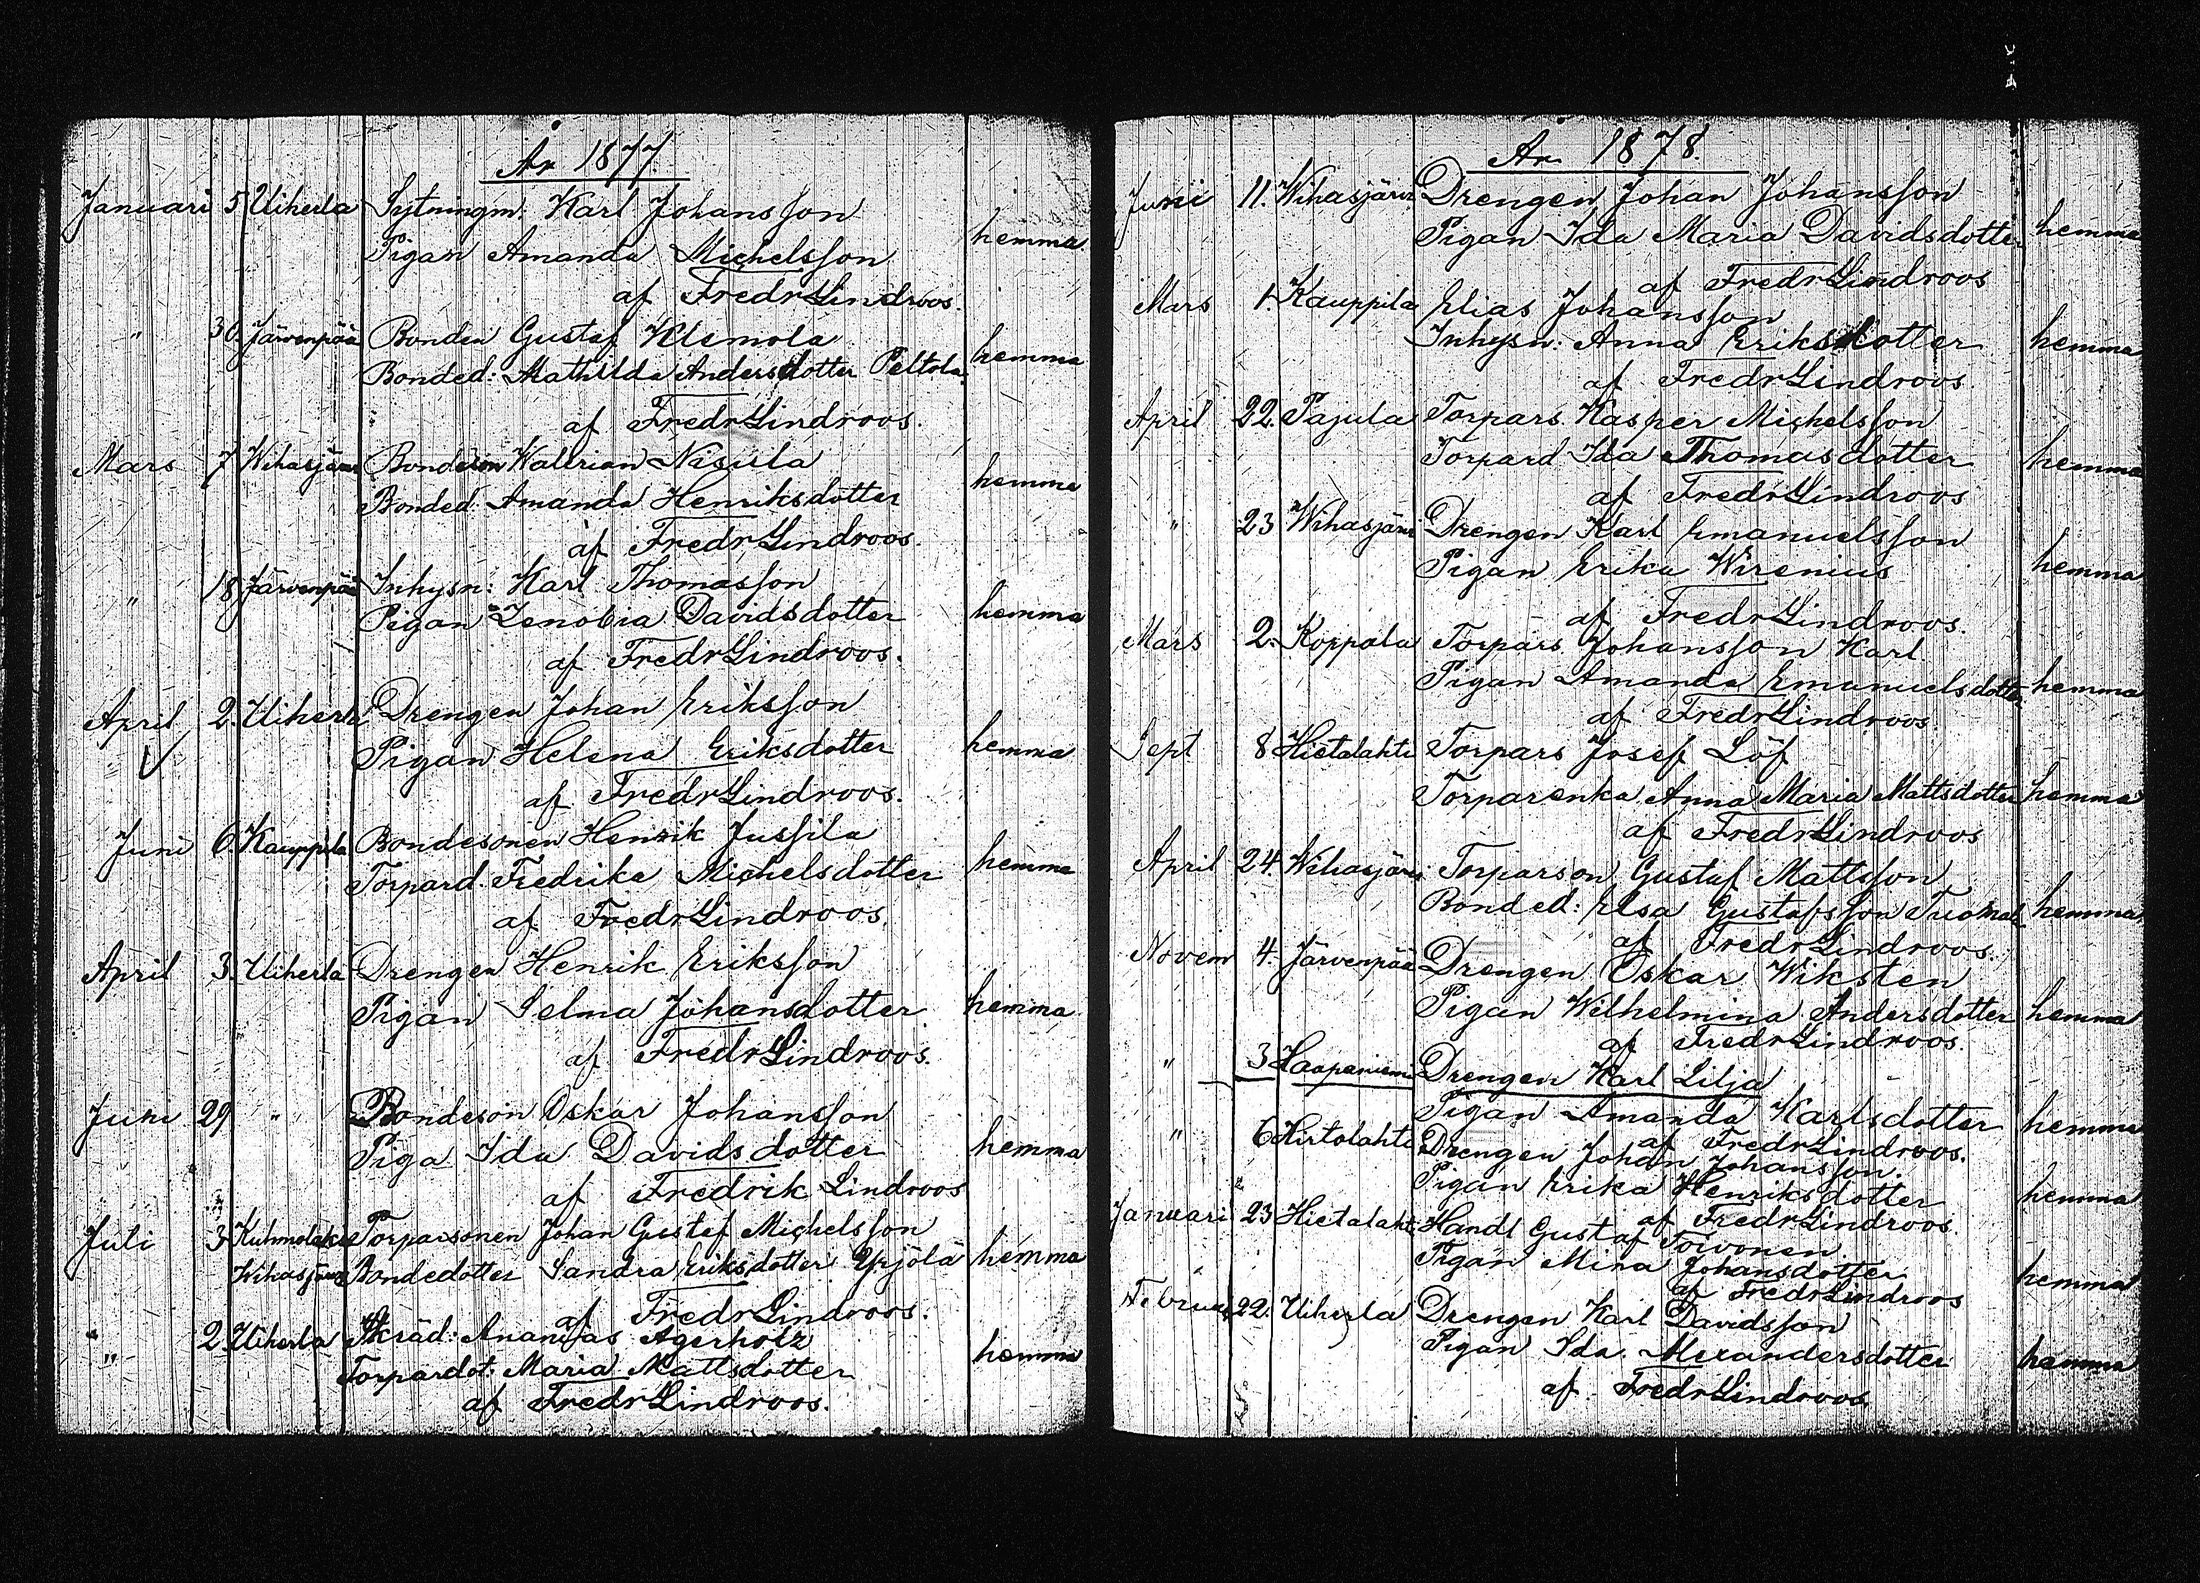 År 1877.
Januari 5 Uiherla Sytningm: Karl Johansson
Pigan Amanda Michelsson hemma
af Fredr Lindroos.
" 30. Järvenpää Bonden Gustaf Klemola
Bonded: Mathilda Andersdotter Peltola. hemma
af Fredr Lindroos.
Mars 7 Wihasjärvi Bondeson Wallrian Nisula
Bonded. Amanda Henriksdotter hemma
af Fredr Lindroos
" 18 Järvenpää Inhysn: Karl Thomasson
Pigan Zenobia Davidsdotter hemma
af Fredr Lindroos.
April 2. Uiherla Drengen Johan Eriksson
Pigan Helena Eriksdotter hemma
af Fredr Lindroos.
Juni 6. Kauppila Bondesonen Henrik Jussila
Torpard. Fredrika Michelsdotter hemma
af Fredr Lindroos.
April 3. Uiherla Drengen Henrik Eriksson
Pigan Selma Johansdotter hemma
af Fredr Lindroos.
Juni 29 " Bondeson Oskar Johansson
Piga Ida Davidsdotter hemma
af Fredrik Lindroos
Juli 3 Torparsonen Johan Gustaf Michelsson
Wihasjärvi Bondedotter Sandra Eriksdotter Yrjölä hemma
af Fredr Lindroos.
" 2. Uiherla Skräd: Ananjas Agerholz
Torpardot: Maria Mattsdotter hemma
af Fredr Lindroos.
År 1878.
Juni 11. Wihasjärvi Drengen Johan Johansson
Pigan Ida Maria Davidsdotter hemma
af Fredr Lindroos
Mars 1. Kauppila Elias Johansson
Inhysn: Anna Eriksdotter hemma
af Fredr Lindroos
April 22. Pajula Torpars. Kasper Michelsson
Torpard Ida Thomasdotter hemma
af Fredr Lindroos
" 23 Wihasjärvi Drengen Karl Emanuelsson
Pigan Erika Wirenius hemma
af Fredr Lindroos.
Mars 2. Koppala Torpars Johansson Karl
Pigan Amanda Emanuelsdotter hemma
af Fredr Lindroos
Sept 8 Hietalahti Torpars Josef Löf
Torparenka Anna Maria Mattsdotter hemma
af Fredr Lindroos
April 24. Wihasjärvi Torparson Gustaf Mattsson
Bonded: Elsa Gustafsson hemma
af Fredr Lindroos.
Novem 4. Järvenpää Drengen Oskar Wiksten
Pigan Wilhelmina Andersdotter hemma
af Fredr Lindroos.
" 3 Haapaniemi Drengen Karl Lilja
Pigan Amanda Karlsdotter hemma
af Fredr Lindroos.
" 6 Drengen Johan Johansson.
Pigan Erika Henriksdotter hemma
af Fredr Lindroos.
Januari 23 Hietalahti Handl Gustaf Toivonen.
Pigan Mina Johansdotter hemma
af Fredr Lindroos
22. Uiherla Drengen Karl Davidsson
Pigan Ida. Alexandersdotter hemma
af Fredr Lindroos.